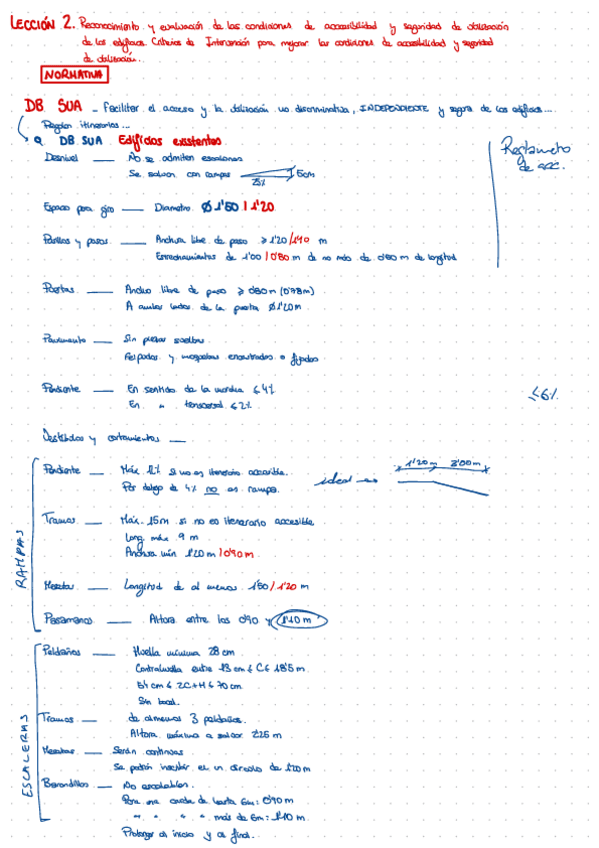 LECCIÓN 2. Reconocimiento y evaluación de las condiciones de accesibilidad y seguridad de utilización
de los edificios. Criterios de Intervención para mejorar las condiciones de accesibilidad y seguridad
de utilización.
NORMATIVA
DB SUA - facilitar el acceso y la utilización no discriminativa, INDEPENDIENTE y segura de los edificios...
Regulan itinerarios...
DB SUA Edificios existentes
Reglamento de acc.
Desnivel — No se admiten escalones
Se salvan con rampas 25% 5cm
Espacio para giro — Diametro Ø 1'50 / 1'20
Pasillos y pasos. — Anchura libre de paso ≥ 1'20/1'10 m
Estrechamientos de 1'00 / 0'80 m de no más de 0'50 m de longitud
Puertas. — Ancho libre de paso ≥ 0'80m (0'78m)
A ambos lados de la puerta Ø 1'20m
Pavimento — Sin piezas sueltas
Felpudos y moquetas encastrados o fijados
Pendiente — En sentido de la marcha ≤ 4%
≤6%
En " transversal ≤ 2%
Vestíbulos y cortavientos —
RAMPAS
Pendiente — Máx. 12% si no es itinerario accesible.
Por debajo de 4% no es rampa.
ideal 1'20m 3'00m
Tramos — Máx. 15m si no es itenerario accesible
Long. máx 9 m
Anchura mín 1'20m / 0'90m.
Mesetas — Longitud de al menos 1'50 / 1'20 m
Pasamanos — Altura entre los 0'90 y 1'10m
ESCALERAS
Peldaños — Huella mínima 28 cm
Contrahuella entre 13 cm ≤ C ≤ 18'5 m
54 cm ≤ 2C+H ≤ 70 cm
Sin bocel.
Tramos — de almenos 3 peldaños.
Altura máxima a salvar 2'25 m
Mesetas — Serán continuas
Se podrán inscribir en un círculo de 1'20 m
Barandillas — No escalables.
Para una caída de hasta 6m: 0'90 m
" " " " más de 6m: 1'10 m.
Prolongar al inicio y al final.